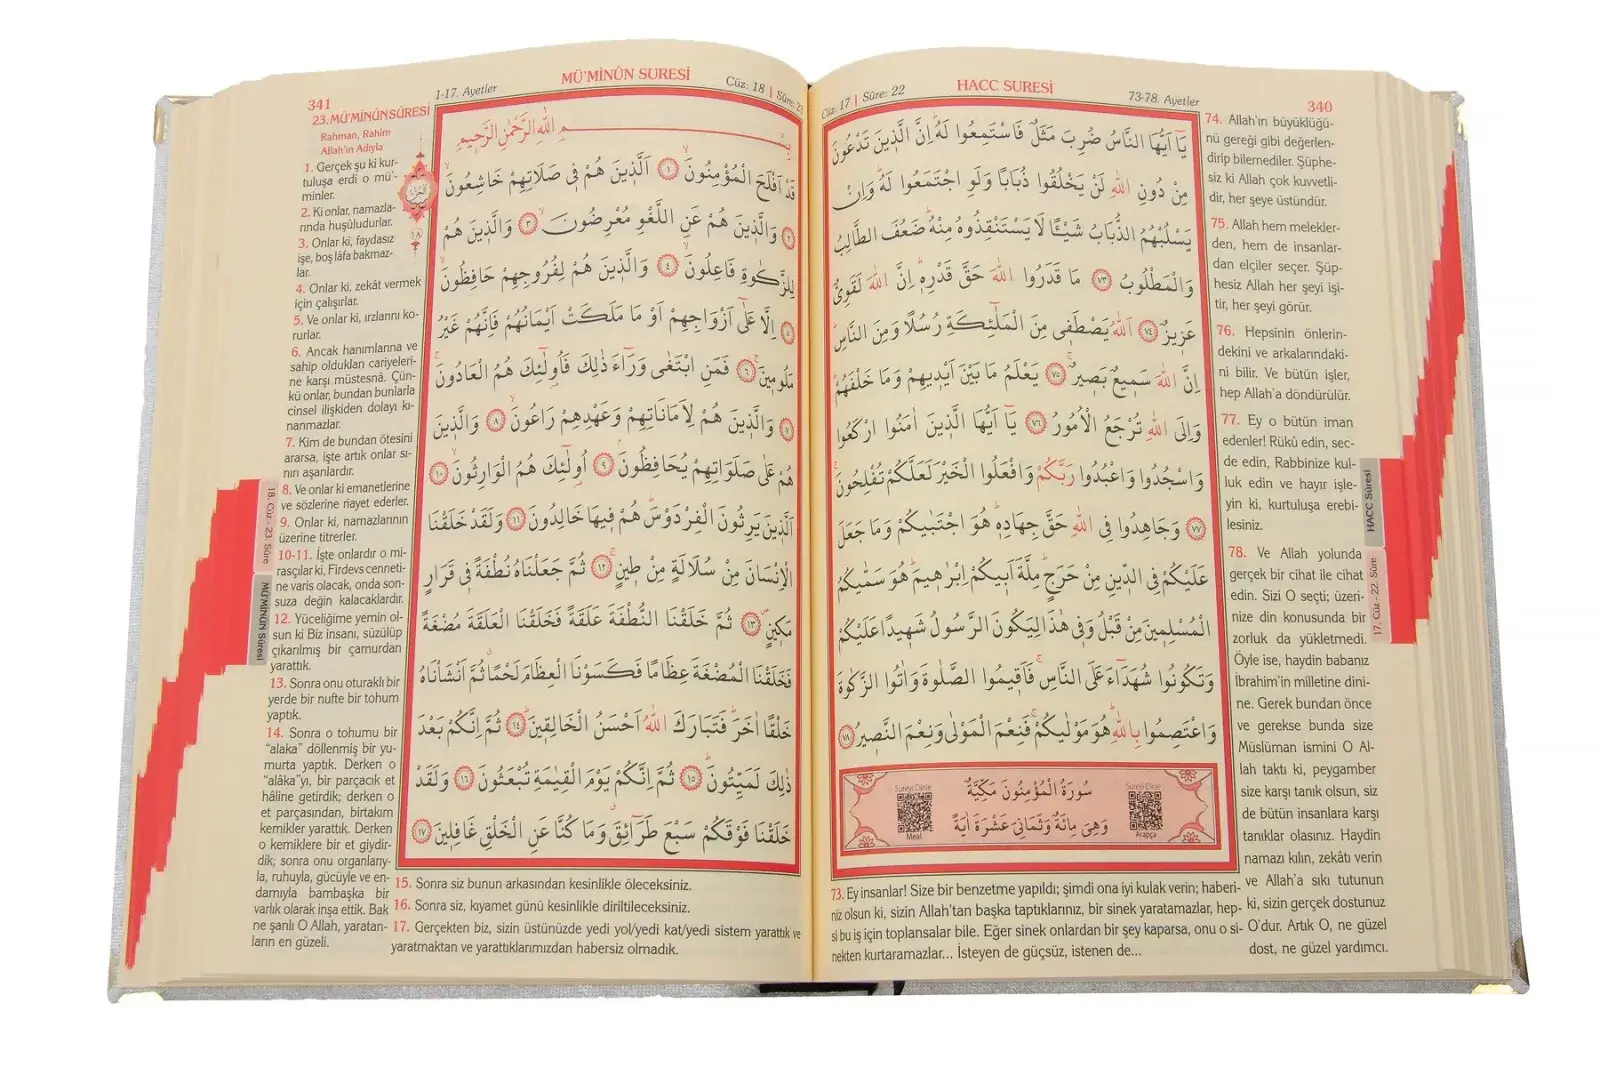 Cüz: 17 | Sûre: 22
HACC SURESİ
73-78. Ayetler
340
يَٓا اَيُّهَا النَّاسُ ضُرِبَ مَثَلٌ فَاسْتَمِعُوا لَهُۜ اِنَّ الَّذ۪ينَ تَدْعُونَ
مِنْ دُونِ اللّٰهِ لَنْ يَخْلُقُوا ذُبَابًا وَلَوِ اجْتَمَعُوا لَهُۜ وَاِنْ
يَسْلُبْهُمُ الذُّبَابُ شَيْـًٔا لَا يَسْتَنْقِذُوهُ مِنْهُۜ ضَعُفَ الطَّالِبُ
وَالْمَطْلُوبُ ﴿٧٣﴾ مَا قَدَرُوا اللّٰهَ حَقَّ قَدْرِه۪ۜ اِنَّ اللّٰهَ لَقَوِيٌّ
عَز۪يزٌ ﴿٧٤﴾ اَللّٰهُ يَصْطَف۪ي مِنَ الْمَلٰٓئِكَةِ رُسُلًا وَمِنَ النَّاسِۜ
اِنَّ اللّٰهَ سَم۪يعٌ بَص۪يرٌۚ ﴿٧٥﴾ يَعْلَمُ مَا بَيْنَ اَيْد۪يهِمْ وَمَا خَلْفَهُمْۜ
وَاِلَى اللّٰهِ تُرْجَعُ الْاُمُورُ ﴿٧٦﴾ يَٓا اَيُّهَا الَّذ۪ينَ اٰمَنُوا ارْكَعُوا
وَاسْجُدُوا وَاعْبُدُوا رَبَّكُمْ وَافْعَلُوا الْخَيْرَ لَعَلَّكُمْ تُفْلِحُونَۚ
﴿٧٧﴾ وَجَاهِدُوا فِي اللّٰهِ حَقَّ جِهَادِه۪ۜ هُوَ اجْتَبٰيكُمْ وَمَا جَعَلَ
عَلَيْكُمْ فِي الدّ۪ينِ مِنْ حَرَجٍۜ مِلَّةَ اَب۪يكُمْ اِبْرٰه۪يمَۜ هُوَ سَمّٰيكُمُ
الْمُسْلِم۪ينَ مِنْ قَبْلُ وَف۪ي هٰذَا لِيَكُونَ الرَّسُولُ شَه۪يدًا عَلَيْكُمْ
وَتَكُونُوا شُهَدَٓاءَ عَلَى النَّاسِۚ فَاَق۪يمُوا الصَّلٰوةَ وَاٰتُوا الزَّكٰوةَ
وَاعْتَصِمُوا بِاللّٰهِۜ هُوَ مَوْلٰيكُمْۚ فَنِعْمَ الْمَوْلٰى وَنِعْمَ النَّص۪يرُ ﴿٧٨﴾
سُورَةُ الْمُؤْمِنُونَ مَكِّيَّةٌ
وَهِيَ مِائَةٌ وَثَمَانِيَ عَشْرَةَ اٰيَةً
Sureyi Dinle
Arapça
Sureyi Dinle
Meal
73. Ey insanlar! Size bir benzetme yapıldı; şimdi ona iyi kulak verin; haberi-
niz olsun ki, sizin Allah'tan başka taptıklarınız, bir sinek yaratamazlar, hep-
si bu iş için toplansalar bile. Eğer sinek onlardan bir şey kaparsa, onu o si-
nekten kurtaramazlar... İsteyen de güçsüz, istenen de...
74. Allah'ın büyüklüğü-
nü gereği gibi değerlen-
dirip bilemediler. Şüphe-
siz ki Allah çok kuvvetli-
dir, her şeye üstündür.
75. Allah hem melekler-
den, hem de insanlar-
dan elçiler seçer. Şüp-
hesiz Allah her şeyi işi-
tir, her şeyi görür.
76. Hepsinin önlerin-
dekini ve arkalarındaki-
ni bilir. Ve bütün işler,
hep Allah'a döndürülür.
77. Ey o bütün iman
edenler! Rükû edin, sec-
de edin, Rabbinize kul-
luk edin ve hayır işle-
yin ki, kurtuluşa erebi-
lesiniz.
78. Ve Allah yolunda
gerçek bir cihat ile cihat
edin. Sizi O seçti; üzeri-
nize din konusunda bir
zorluk da yükletmedi.
Öyle ise, haydin babanız
İbrahim'in milletine dini-
ne. Gerek bundan önce
ve gerekse bunda size
Müslüman ismini O Al-
lah taktı ki, peygamber
size karşı tanık olsun, siz
de bütün insanlara karşı
tanıklar olasınız. Haydin
namazı kılın, zekâtı verin
ve Allah'a sıkı tutunun
ki, sizin gerçek dostunuz
O'dur. Artık O, ne güzel
dost, ne güzel yardımcı.
HACC Sûresi
17. Cüz - 22. Sûre
341
1-17. Ayetler
MÜ'MİNÛN SURESİ
Cüz: 18 | Sûre: 23
بِسْمِ اللّٰهِ الرَّحْمٰنِ الرَّح۪يمِ
قَدْ اَفْلَحَ الْمُؤْمِنُونَۙ ﴿١﴾ اَلَّذ۪ينَ هُمْ ف۪ي صَلَاتِهِمْ خَاشِعُونَۙ
﴿٢﴾ وَالَّذ۪ينَ هُمْ عَنِ اللَّغْوِ مُعْرِضُونَۙ ﴿٣﴾ وَالَّذ۪ينَ هُمْ
لِلزَّكٰوةِ فَاعِلُونَۙ ﴿٤﴾ وَالَّذ۪ينَ هُمْ لِفُرُوجِهِمْ حَافِظُونَۙ
﴿٥﴾ اِلَّا عَلٰٓى اَزْوَاجِهِمْ اَوْ مَا مَلَكَتْ اَيْمَانُهُمْ فَاِنَّهُمْ غَيْرُ
مَلُوم۪ينَۚ ﴿٦﴾ فَمَنِ ابْتَغٰى وَرَٓاءَ ذٰلِكَ فَاُو۬لٰٓئِكَ هُمُ الْعَادُونَۚ
﴿٧﴾ وَالَّذ۪ينَ هُمْ لِاَمَانَاتِهِمْ وَعَهْدِهِمْ رَاعُونَۙ ﴿٨﴾ وَالَّذ۪ينَ
هُمْ عَلٰى صَلَوَاتِهِمْ يُحَافِظُونَۢ ﴿٩﴾ اُو۬لٰٓئِكَ هُمُ الْوَارِثُونَۙ ﴿١٠﴾
اَلَّذ۪ينَ يَرِثُونَ الْفِرْدَوْسَۜ هُمْ ف۪يهَا خَالِدُونَ ﴿١١﴾ وَلَقَدْ خَلَقْنَا
الْاِنْسَانَ مِنْ سُلَالَةٍ مِنْ ط۪ينٍۚ ﴿١٢﴾ ثُمَّ جَعَلْنَاهُ نُطْفَةً ف۪ي قَرَارٍ
مَك۪ينٍۖ ﴿١٣﴾ ثُمَّ خَلَقْنَا النُّطْفَةَ عَلَقَةً فَخَلَقْنَا الْعَلَقَةَ مُضْغَةً
فَخَلَقْنَا الْمُضْغَةَ عِظَامًا فَكَسَوْنَا الْعِظَامَ لَحْمًا ثُمَّ اَنْشَأْنَاهُ
خَلْقًا اٰخَرَۜ فَتَبَارَكَ اللّٰهُ اَحْسَنُ الْخَالِق۪ينَۜ ﴿١٤﴾ ثُمَّ اِنَّكُمْ بَعْدَ
ذٰلِكَ لَمَيِّتُونَۜ ﴿١٥﴾ ثُمَّ اِنَّكُمْ يَوْمَ الْقِيٰمَةِ تُبْعَثُونَ ﴿١٦﴾ وَلَقَدْ
خَلَقْنَا فَوْقَكُمْ سَبْعَ طَرَٓائِقَۗ وَمَا كُنَّا عَنِ الْخَلْقِ غَافِل۪ينَ ﴿١٧﴾
23. MÜ'MİNÛN SÛRESİ
Rahman, Rahim
Allah'ın Adıyla
1. Gerçek şu ki kur-
tuluşa erdi o mü'-
minler.
2. Ki onlar, namazla-
rında huşûludurlar.
3. Onlar ki, faydasız
işe, boş lâfa bakmaz-
lar.
4. Onlar ki, zekât vermek
için çalışırlar.
5. Ve onlar ki, ırzlarını ko-
rurlar.
6. Ancak hanımlarına ve
sahip oldukları cariyeleri-
ne karşı müstesnâ. Çün-
kü onlar, bundan bunlarla
cinsel ilişkiden dolayı kı-
nanmazlar.
7. Kim de bundan ötesini
ararsa, işte artık onlar sı-
nırı aşanlardır.
8. Ve onlar ki emanetlerine
ve sözlerine riayet ederler.
9. Onlar ki, namazlarının
üzerine titrerler.
10-11. İşte onlardır o mi-
rasçılar ki, Firdevs cenneti-
ne varis olacak, onda son-
suza değin kalacaklardır.
12. Yüceliğime yemin ol-
sun ki Biz insanı, süzülüp
çıkarılmış bir çamurdan
yarattık.
13. Sonra onu oturaklı bir
yerde bir nufte bir tohum
yaptık.
14. Sonra o tohumu bir
"alaka" döllenmiş bir yu-
murta yaptık. Derken o
"alâka"yı, bir parçacık et
hâline getirdik; derken o
et parçasından, birtakım
kemikler yarattık. Derken
o kemiklere bir et giydir-
dik; sonra onu organlarıy-
la, ruhuyla, gücüyle ve en-
damıyla bambaşka bir
varlık olarak inşa ettik. Bak
ne şanlı O Allah, yaratan-
ların en güzeli.
15. Sonra siz bunun arkasından kesinlikle öleceksiniz.
16. Sonra siz, kıyamet günü kesinlikle diriltileceksiniz.
17. Gerçekten biz, sizin üstünüzde yedi yol/yedi kat/yedi sistem yarattık ve
yaratmaktan ve yarattıklarımızdan habersiz olmadık.
18. Cüz - 23. Sûre
MÜ'MİNÛN Sûresi